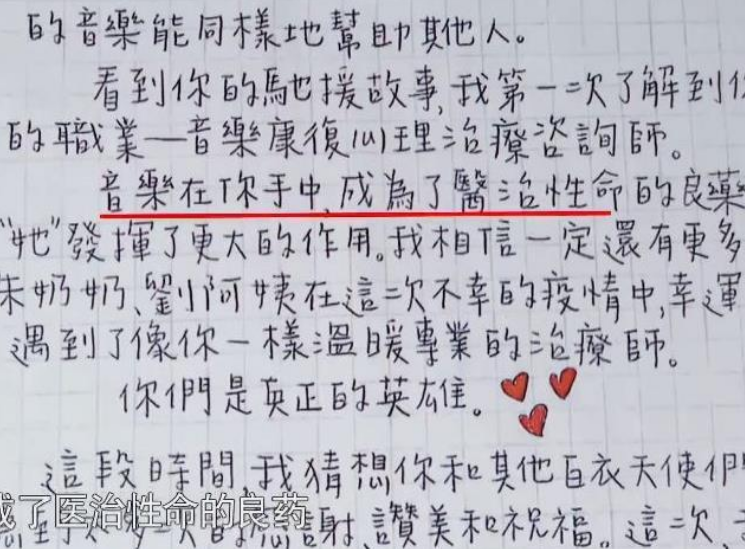 的音樂能同樣地幫助其他人。
看到你的馳援故事,我第一次了解到
的職業—音樂康復心理治療咨詢師。
音樂在你手中,成為了醫治性命的良藥
"她"發揮了更大的作用。我相信一定還有更多
朱奶奶、劉小阿姨在這次不幸的疫情中,幸運
遇到了像你一樣溫暖專業的治療師。
你們是真正的英雄。
這段時間,我猜想你和其他白衣天使們
成了医治性命的良药
謝,讚美和祝福。這次,